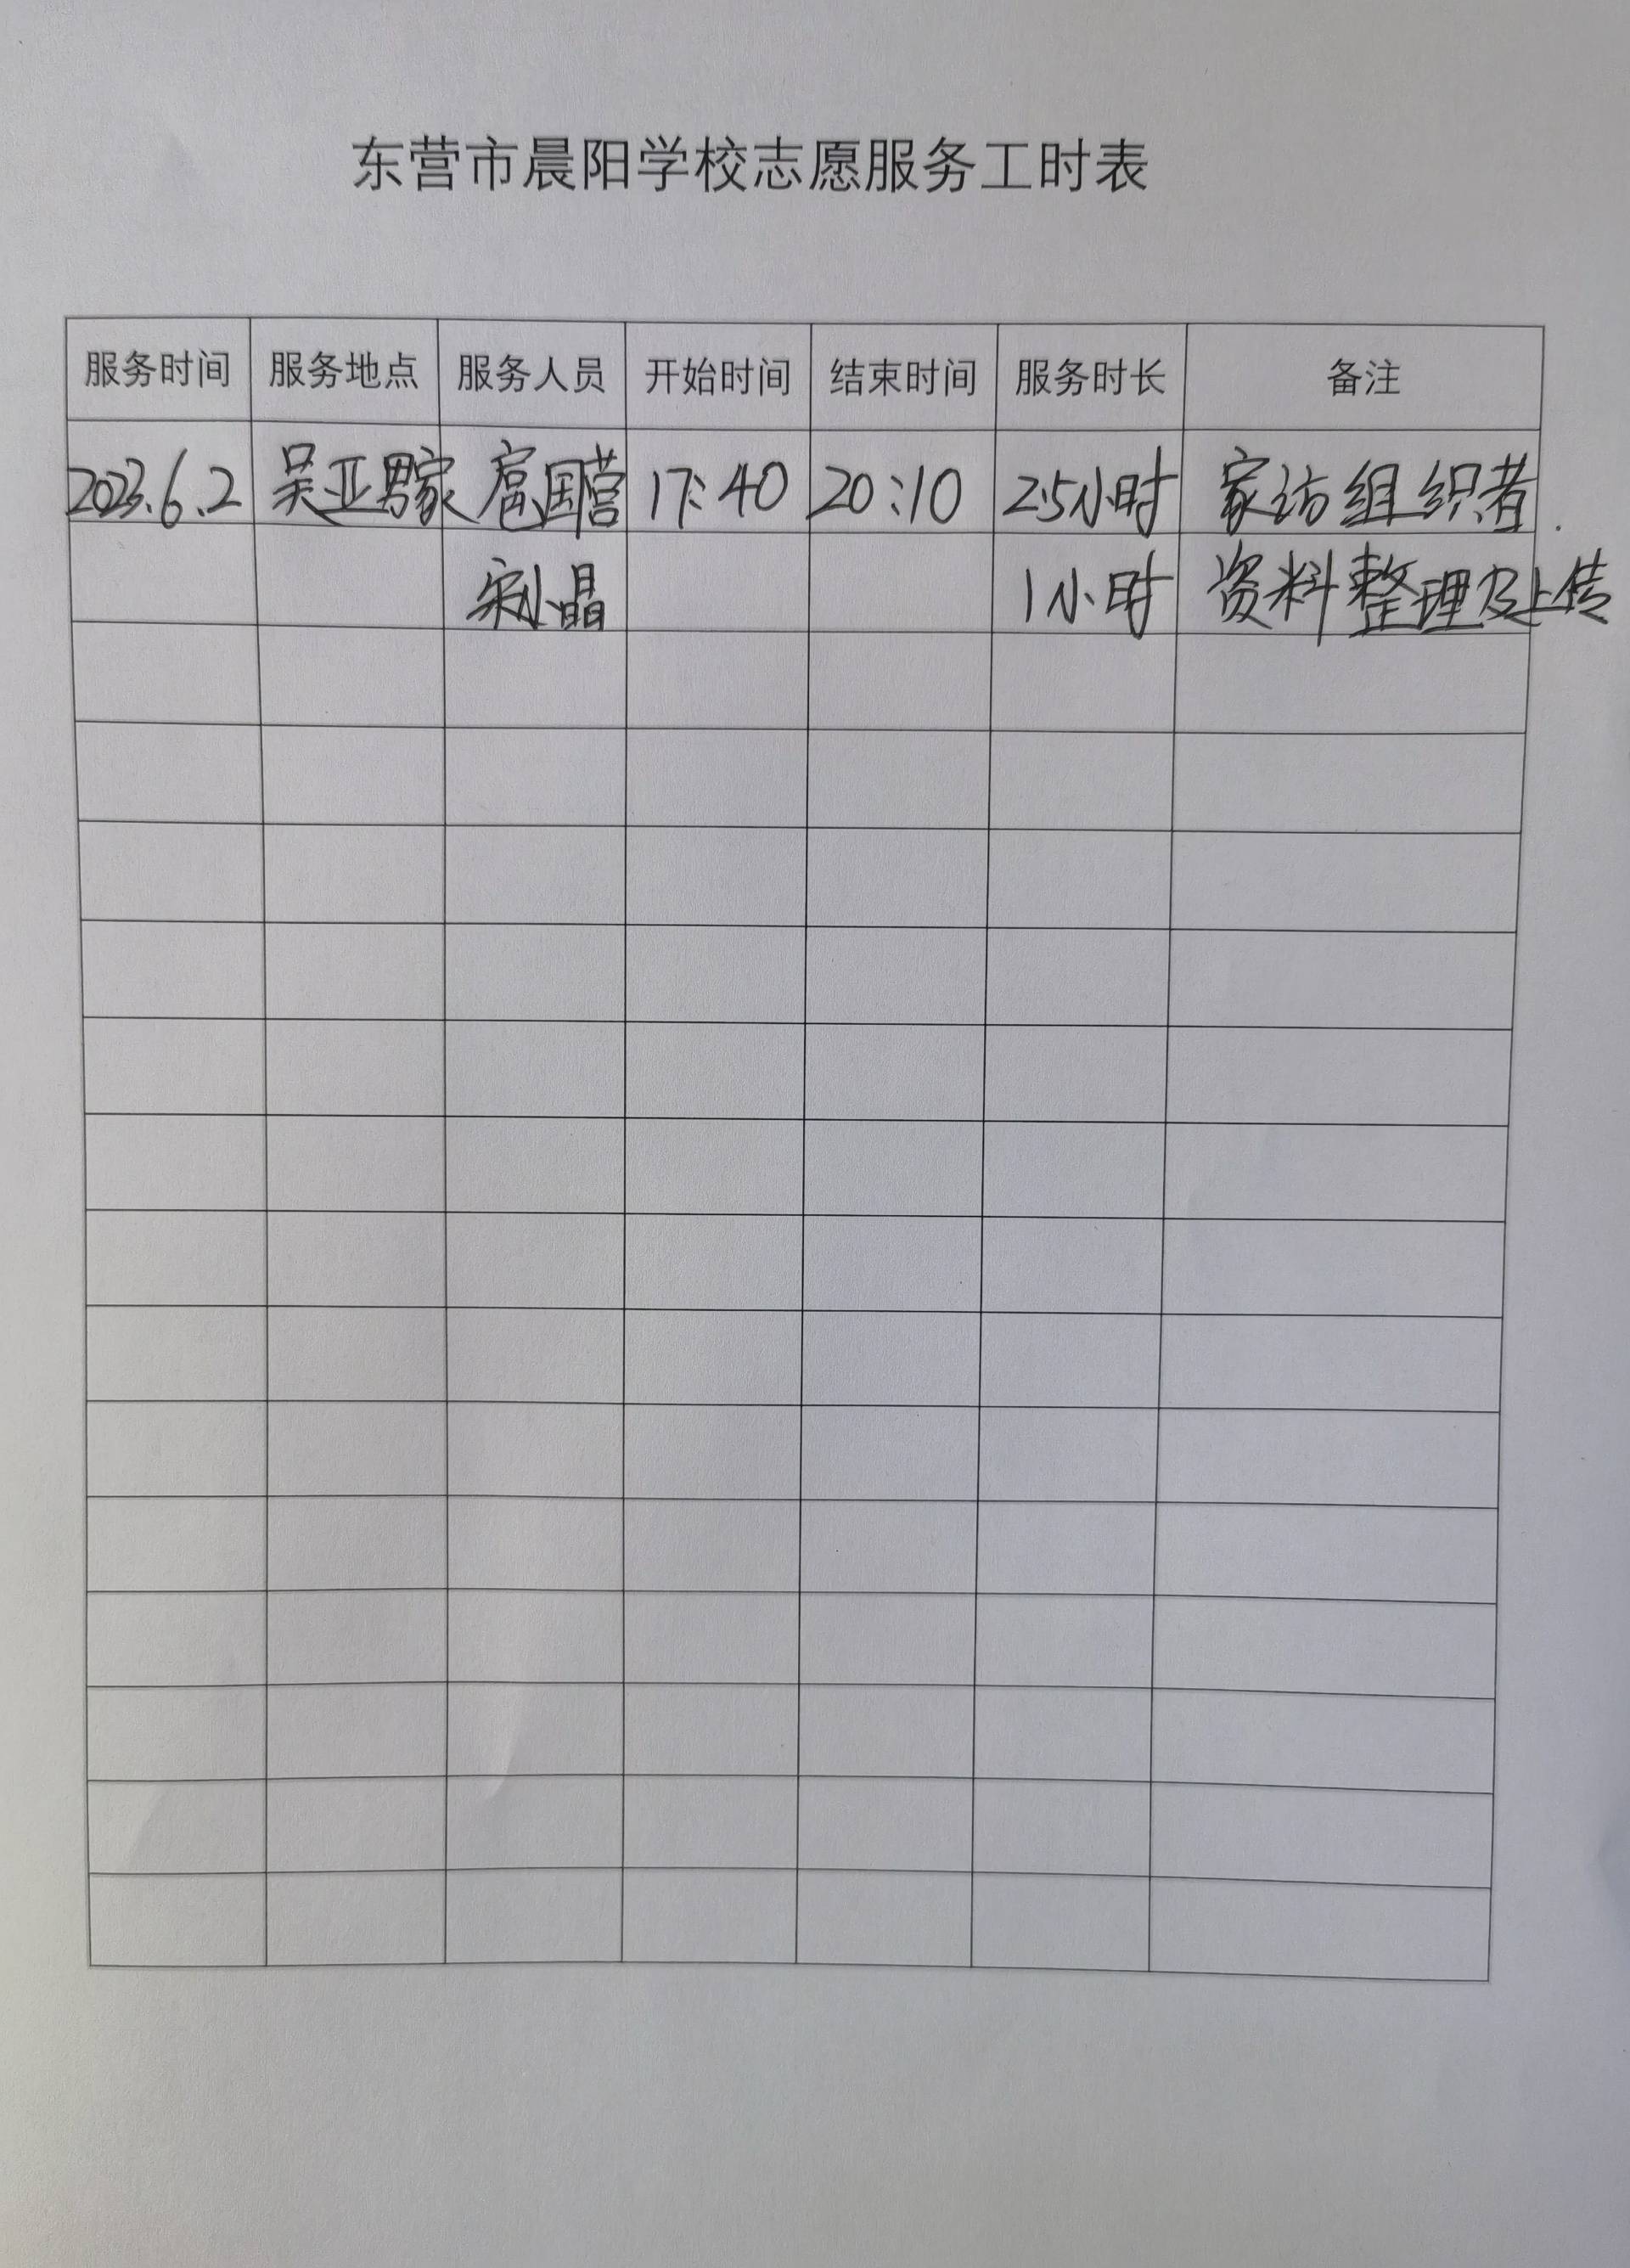 东营市晨阳学校志愿服务工时表
服务时间 服务地点 服务人员 开始时间 结束时间 服务时长 备注
2023.6.2 吴亚男家 扈国营 17:40 20:10 2.5小时 家访组织者.
宋小晶 1小时 资料整理及上传